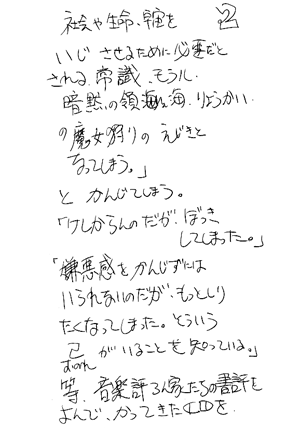 社会や生命、宇宙を 2
いじ させるために必要だと
される常識、モラル、
暗黙の領海、りょうかい
の魔女狩りの えじきと
なってしまう。」
と かんじてしまう。
「ケしからんのだが、ぼっき
してしまった。」
「嫌悪感をかんじずには
いられないのだが、もっとしり
たくなってしまった。そういう
己 がいることを知っている。」
おのれ
等、音楽評ろん家たちの書評を
よんで、かってきたCDを